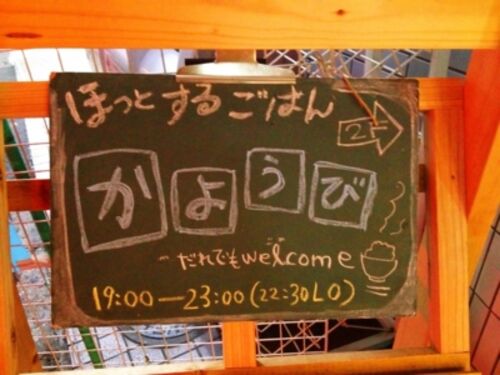 ほっとするごはん
2F
かようび
だれでもwelcome
19:00—23:00(22:30LO)